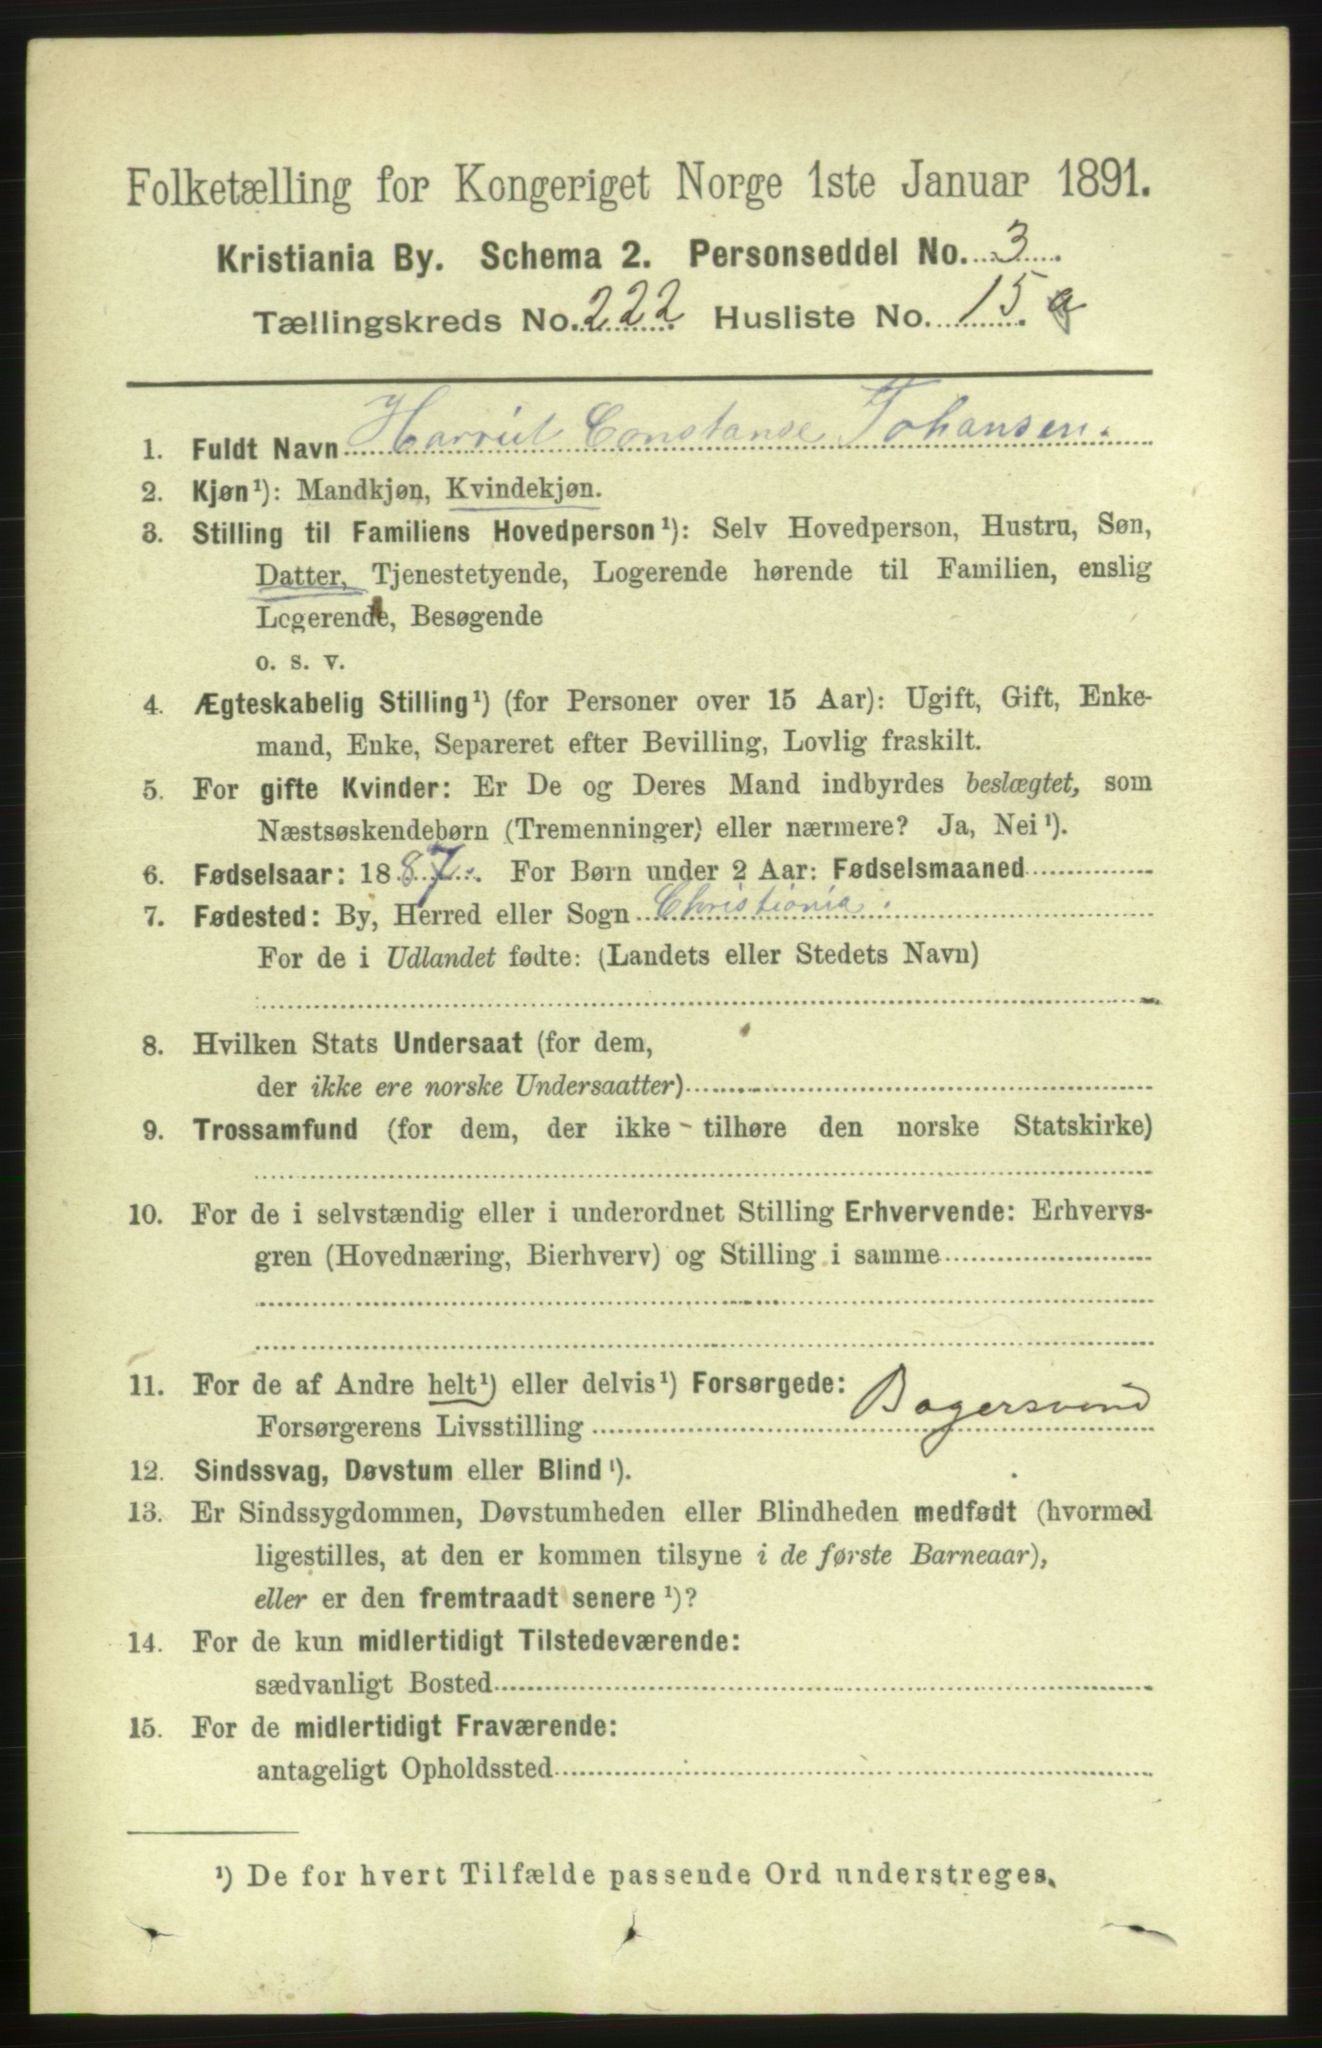 Folketælling for Kongeriget Norge 1ste Januar 1891.
Kristiania By. Schema 2. Personseddel No. 3.
Tællingskreds No. 222. Husliste No. 15. a
1. Fuldt Navn Constanse Johansen.
2. Kjøn¹): Mandkjøn, Kvindekjøn.
3. Stilling til Familiens Hovedperson¹): Selv Hovedperson, Hustru, Søn,
Datter, Tjenestetyende, Logerende hørende til Familien, enslig
Logerende, Besøgende
o. s. v.
4. Ægteskabelig Stilling¹) (for Personer over 15 Aar): Ugift, Gift, Enke-
mand, Enke, Separeret efter Bevilling, Lovlig fraskilt.
5. For gifte Kvinder: Er De og Deres Mand indbyrdes beslægtet, som
Næstsøskendebørn (Tremenninger) eller nærmere? Ja, Nei¹).
6. Fødselsaar: 1887. For Børn under 2 Aar: Fødselsmaaned
7. Fødested: By, Herred eller Sogn Christiania.
For de i Udlandet fødte: (Landets eller Stedets Navn)
8. Hvilken Stats Undersaat (for dem,
der ikke ere norske Undersaatter)
9. Trossamfund (for dem, der ikke tilhøre den norske Statskirke)
10. For de i selvstændig eller i underordnet Stilling Erhvervende: Erhvervs-
gren (Hovednæring, Bierhverv) og Stilling i samme
11. For de af Andre helt¹) eller delvis¹) Forsørgede:
Forsørgerens Livsstilling Bagersvend
12. Sindssvag, Døvstum eller Blind¹).
13. Er Sindssygdommen, Døvstumheden eller Blindheden medfødt (hvormed
ligestilles, at den er kommen tilsyne i de første Barneaar),
eller er den fremtraadt senere¹)?
14. For de kun midlertidigt Tilstedeværende:
sædvanligt Bosted
15. For de midlertidigt Fraværende:
antageligt Opholdssted
¹) De for hvert Tilfælde passende Ord understreges.